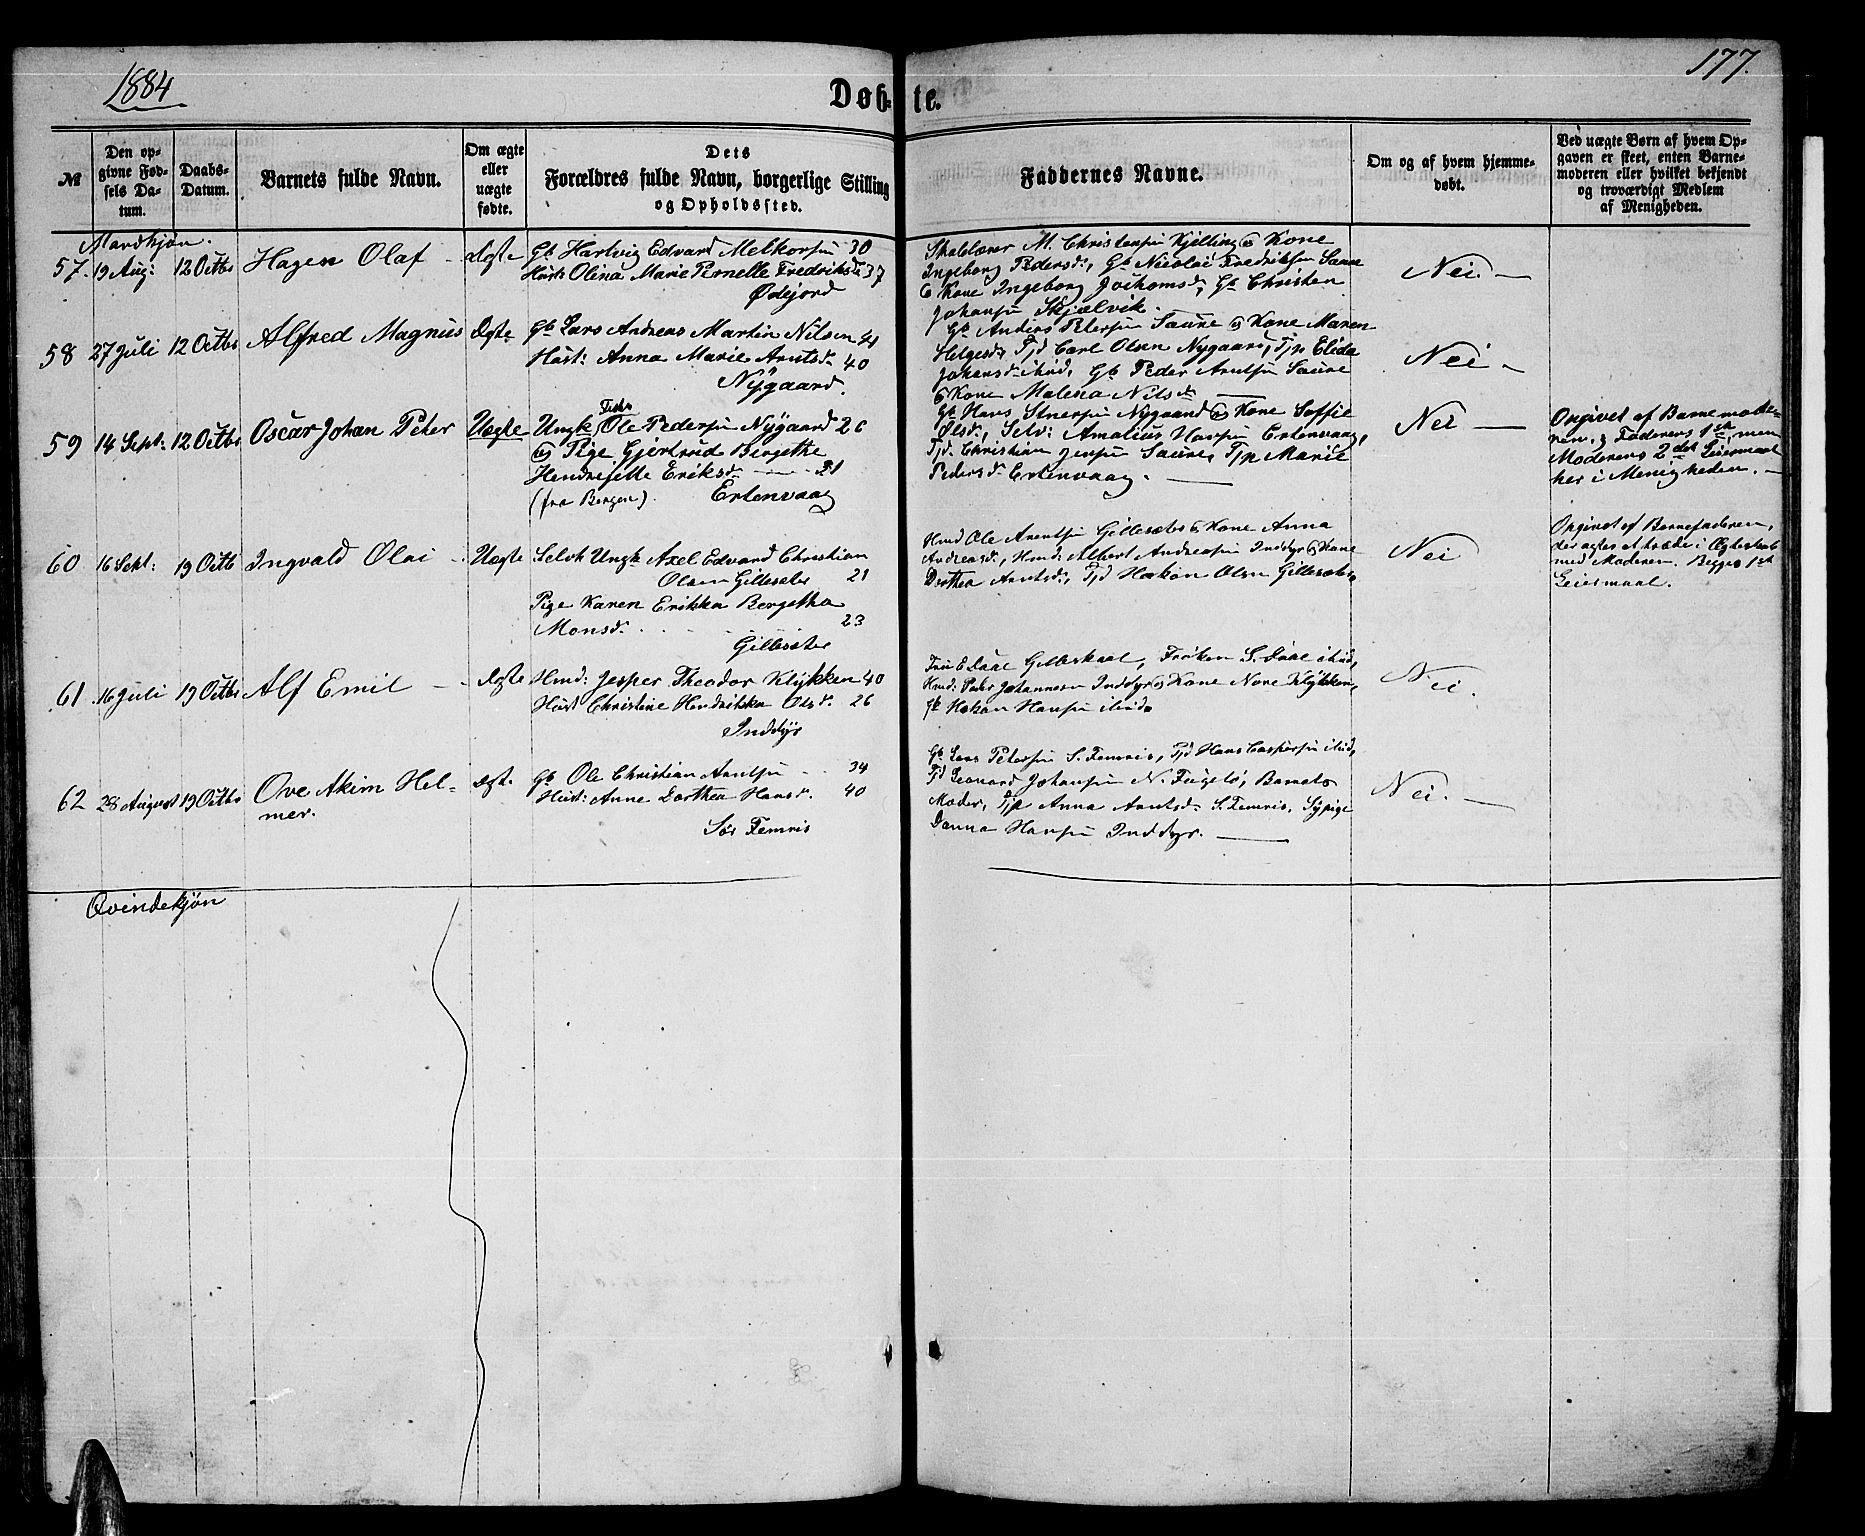 1884
177.
Døb-te.
№
Den opgivne Fødsels Datum.
Daabs-Datum.
Barnets fulde Navn.
Om ægte eller uægte fødte.
Dets Forældres fulde Navn, borgerlige Stilling og Opholdssted.
Faddernes Navne.
Om og af hvem hjemmedøbt.
Ved uægte Børn af hvem Opgaven er skeet, enten Barnemoderen eller hvilket bekjendt og troværdigt Medlem af Menigheden.
Mandkjøn.
57. 19 Aug: 12 Octbr Hagen Olaf Ægte
Gb Hartvig Edvard Melkorsen 30
Hust: Olina Marie Pernelle Fredriksd. 37
Ødejord
M. Christensen Kjelling & Kone
Ingeborg Pedersd., Gb Nicolai Fredriksen Saure
& Kone Ingeborg Jochomsd., Gb Christen
Johansen Skjælvik.
Nei. —
58 27 Juli 12 Octbr Alfred Magnus Ægte
Gb Lars Andreas Martin Nilsen 41
Hust: Anna Marie Arntsd. 40
Nygaard.
Gb Anders Petersen Saure & Kone Maren
Helgesd., Tjd Carl Olsen Nygaard, Tjp Elida
Johansd. ibid, Gb Peder Arntsen Saure
& Kone Malena Nilsd.
Nei —
59 14 Sept: 12 Octbr Oscar Johan Peter Uægte
Ungk Fisker Ole Pedersen Nygaard 26
og Pige Gjertrud Bergethe
Hendrijette Eriksd. 21
(fra Bergen). Ertenvaag
Gb Hans Nygaard & Kone Soffie
Olsd., Selv: Amalius Hansen Ertenvaag,
Tjd. Christian Jensen Saure, Tjp Marie
Pedersd. Ertenvaag. —
Nei —
Opgivet af Barnemoderen, Faderens 1st, men
Moderens 2det Leiermaal
her i Menigheden. —
60 16 Sept: 19 Octb Ingvald Olai Uægte
Selvk Ungk Axel Edvard Christian
Olsen Gillesæter 21
Pige Karen Erikka Bergetha
Monsd. 23
Gillesæter
Hmd Ole Arntsen Gillesæter & Kone Anna
Andreasd., Hmd: Albert Andreasen Inddyr & Kone
Dorthea Arntsd., Tjd Hakon Olsen Gillesæter
Nei
Opgivet af Barnefaderen,
der agter at træde i Ægteskab
med Moderen. Begges 1st
Leiermaal.
61 16 Juli 19 Octbr Alf Emil Ægte
Hmd: Jesper Theodor Klykken 40
Hust Christine Hendrikka Olsd. 26
Inddyr
Fru E Daae Gilleskaal, Frøken S. Daae ibid,
Hmd: Peder Johannesen Inddyr & Kone Klykken,
Hakon Hansen ibid
Nei.
62 28 August 19 Octbr Ove Akim Hel-
mer. Ægte
Gb Ole Christian Arntsen 34
Hust: Anne Dorthea Hansd. 40
Sør Femris
Gb Lars Petersen S. Femris, Tjd Hans Caspersen ibid,
Tjd Leonard Johansen N. Fugelø, Barnets
Moder, Tjp Anna Arntsd. S. Femris, Sypige
Danna Hansen Inddyr. —
Nei. —
Qvindekjøn